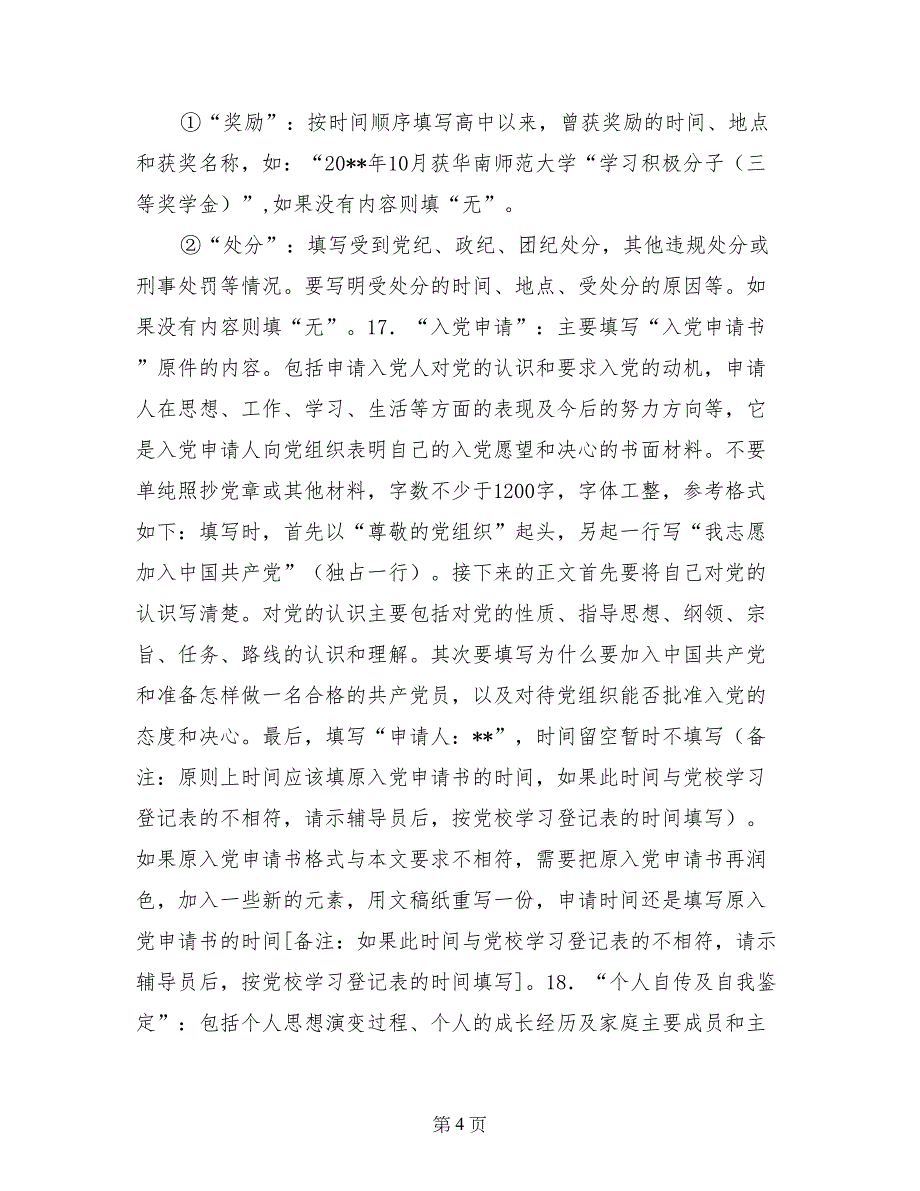 ①“奖励”：按时间顺序填写高中以来，曾获奖励的时间、地点
和获奖名称，如：“20**年10月获华南师范大学“学习积极分子（三
等奖学金）”,如果没有内容则填“无”。
②“处分”：填写受到党纪、政纪、团纪处分，其他违规处分或
刑事处罚等情况。要写明受处分的时间、地点、受处分的原因等。如
果没有内容则填“无”。17．“入党申请”：主要填写“入党申请书
”原件的内容。包括申请入党人对党的认识和要求入党的动机，申请
人在思想、工作、学习、生活等方面的表现及今后的努力方向等，它
是入党申请人向党组织表明自己的入党愿望和决心的书面材料。不要
单纯照抄党章或其他材料，字数不少于1200字，字体工整，参考格式
如下：填写时，首先以“尊敬的党组织”起头，另起一行写“我志愿
加入中国共产党”（独占一行）。接下来的正文首先要将自己对党的
认识写清楚。对党的认识主要包括对党的性质、指导思想、纲领、宗
旨、任务、路线的认识和理解。其次要填写为什么要加入中国共产党
和准备怎样做一名合格的共产党员，以及对待党组织能否批准入党的
态度和决心。最后，填写“申请人：**”，时间留空暂时不填写（备
注：原则上时间应该填原入党申请书的时间，如果此时间与党校学习
登记表的不相符，请示辅导员后，按党校学习登记表的时间填写）。
如果原入党申请书格式与本文要求不相符，需要把原入党申请书再润
色，加入一些新的元素，用文稿纸重写一份，申请时间还是填写原入
党申请书的时间[备注：如果此时间与党校学习登记表的不相符，请示
辅导员后，按党校学习登记表的时间填写]。18．“个人自传及自我鉴
定”：包括个人思想演变过程、个人的成长经历及家庭主要成员和主
第 4 页